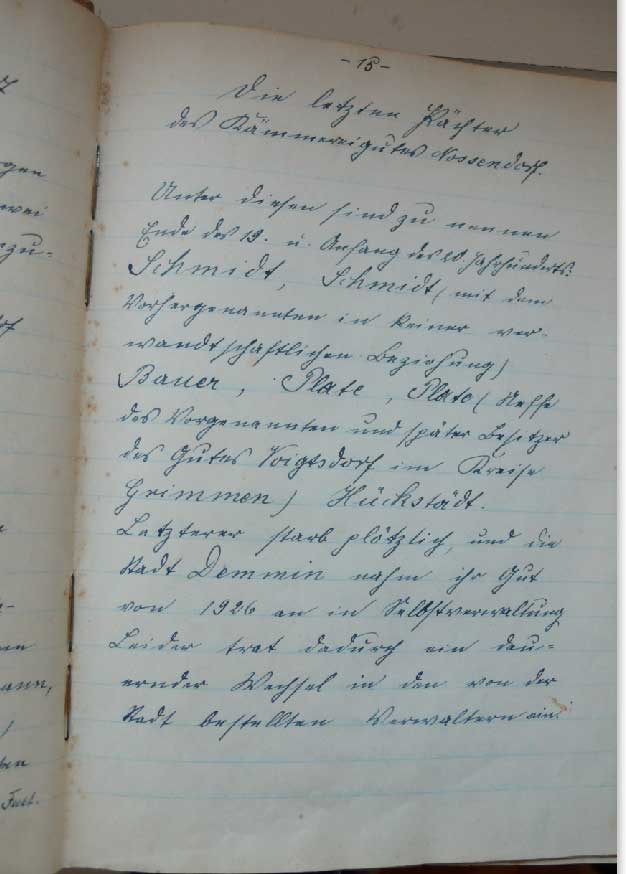 - 15 -
Die letzten Pächter
des Kämmereigutes Nossendorf.
Unter diesen sind zu nennen
Ende des 19. u. Anfang des 20. Jahrhunderts:
Schmidt, Schmidt (mit dem
Vorhergenannten in keiner ver-
wandtschaftlichen Beziehung)
Bauer, Plate, Plate (Neffe
des Vorgenannten und später Besitzer
des Gutes Voigtsdorf im Kreise
Grimmen) Hückstädt.
Letzterer starb plötzlich, und die
Stadt Demmin nahm ihr Gut
von 1926 an in Selbstverwaltung
Leider trat dadurch ein dau-
ernder Wechsel in den von der
Stadt bestellten Verwaltern ein.